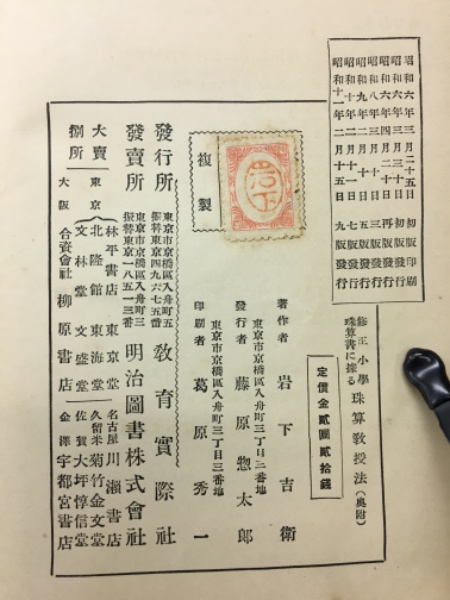 昭和六年三月二十五日 初版印刷
昭和六年三月三十日 初版發行
昭和六年四月二十日 再版發行
昭和八年三月十日 三版發行
昭和九年二月十日 五版發行
昭和十年二月十一日 七版發行
昭和十一年二月十五日 九版發行
修正小學珠算書に據る 珠算教授法(奧附)
定價金貳圓貳拾錢
著作者 岩下吉衛
東京市京橋區入舟町三丁目三番地
發行者 藤原惣太郎
東京市京橋區入舟町三丁目三番地
印刷者 葛原秀一
複製
岩下
發行所 東京市京橋區入舟町五 振替東京四九六七五番 教育實際社
發賣所 東京市京橋區入舟町三 振替東京一八五一三番 明治圖書株式會社
大賣捌所
東京 林平書店 東京堂 名古屋 川瀨書店
北隆館 東海堂 久留米 菊竹金文堂
文林堂 文盛堂 佐賀 大坪惇信堂
大阪 合資會社 柳原書店 金澤 宇都宮書店